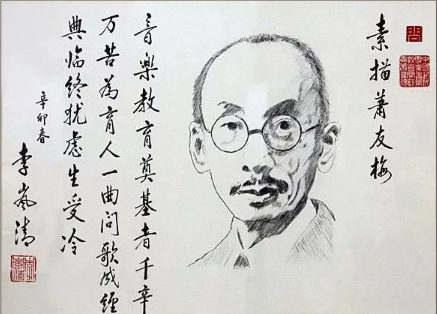 素描萧友梅
音乐教育奠基者千辛
万苦为育人一曲问歌成经
典临终犹虑生受冷
辛卯春
李岚清